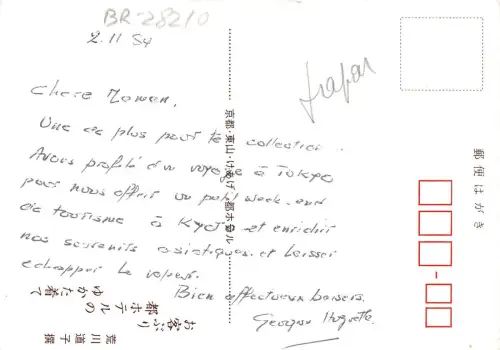 BR-28210
2.11 84
Chère Maman,
Une de plus pour ta collection.
Avons profité d'un voyage à Tokyo
pour nous offrir un petit week-end
de tourisme à Kyoto et enrichir
nos souvenirs asiatiques et laisser
échapper la vapeur.
Bien affectueux baisers.
Georges Huguette
Japon
京都・東山・けあげ 都ホテル
郵便はがき
お客ぶり
都ホテルの
ゆかた着て
荒川道子撰